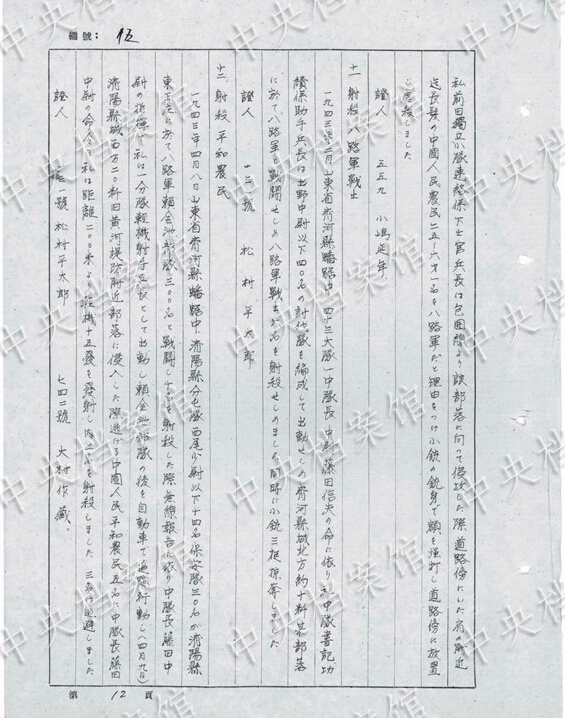 編號：
私前田獨立小隊連繫係下士官兵長は包囲線より該部落に向って侵攻した際道路傍にいた肩の附近
迄長髪の中國人民農民二五、六才一名を八路軍だと理由をつけ小銃の銃身で頭を強打し道路傍に放置
し虐殺しました
證人 五五九 小嶋延年
十一 射殺八路軍戦士
一九四三年二月山東省齊河縣蟠踞中四十三大隊一中隊長中尉藤田信夫の命に依り私中隊書記功
績係助手兵長は出野中尉以下四〇名の討伐隊を編成して出動せしめ齊河縣城北方約十粁某部落
に於て八路軍と戦闘せしめ八路軍戦士 名を射殺せしめました 同時に小銃三挺掠奪しました
證人 號 松村平太郎
十二 射殺平和農民
一九四三年四月八日山東省齊河縣蟠踞中、濟陽縣分屯隊西尾少尉以下十四名保安隊三〇名が濟陽縣
東 に於て八路軍頼金池部隊三〇〇名と戦闘し を射殺した際無線報告に依り中隊長藤田中
尉の指揮 私は一分隊軽機射手兵長として出動し頼金池部隊の後を自動車で追跡行動し(四月九日)
濟陽縣城西方二〇粁旧黄河堤防附近部落に侵入した際逃げる中國人民平和農民五名に中隊長藤田
中尉の命令で私は距離二〇〇米より軽機十五發を發射し内二名を射殺しました 三名は逃避しました
證人 一號 松村平太郎 七四二號 大村作藏、
第 12 頁
中央档案馆